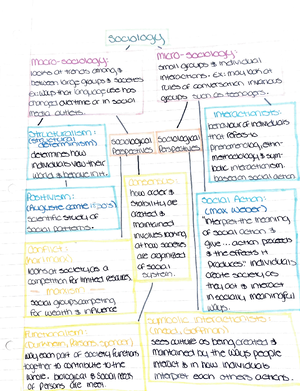 Sociology
Macro-sociology:
looks at trends among &
between large groups & societies
Ex: Ways that language use has
changed over time or in social
media outlets.
Micro-sociology:
small groups & individual
interactions. Ex: may look at
rules of conversation in various
groups such as teenagers.
Structuralism:
(structural
determinism)
determines how
individuals view their
world & behave in it.
Sociological
Perspectives
Sociological
Perspectives
Interactionists:
behaviour of individuals
that refers to
phenomenology, ethno-
methodology, & sym-
bolic interactionism
based on social action
Positivism:
(Auguste Comte 1830's)
scientific study of
social patterns.
Consensus:
how order &
stability are
created &
maintained
involves looking
at how societies
are organized
of social
system.
Social Action:
(Max Weber)
"interprets the meaning
of social action &
give... action proceeds
& the effects it
produces" individuals
create society as
they act & interact
in socially meaningful
ways.
Conflict:
(Karl Marx)
looks at society as a
competition for limited resources
- Marxism -
social groups competing
for wealth & influence
Functionalism:
(Durkheim, Parsons, Spencer)
way each part of society functions
together to contribute to the
whole. Biological & social needs
of persons are meet.
Symbolic Interactionists:
(Mead, Goffman)
sees culture as being created &
maintained by the ways people
interact & in how individuals
interpret each others actions.